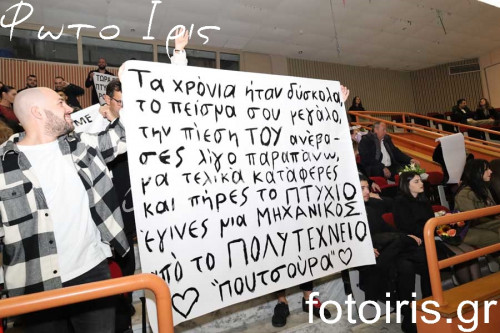 Φωτο Ιρις
ΤΩΡΑ
ME
Τα χρόνια ήταν δύσκολα,
το πείσμα σου μεγάλο,
την πίεση ΤΟΥ ανέβα-
σες λίγο παραπάνω,
μα τελικά κατάφερες
και πήρες το ΠΤΥΧΙΟ
έγινες μια ΜΗΧΑΝΙΚΟΣ
από το ΠΟΛΥΤΕΧΝΕΙΟ
♡ "πουτσούρα" ♡
fotoiris.gr